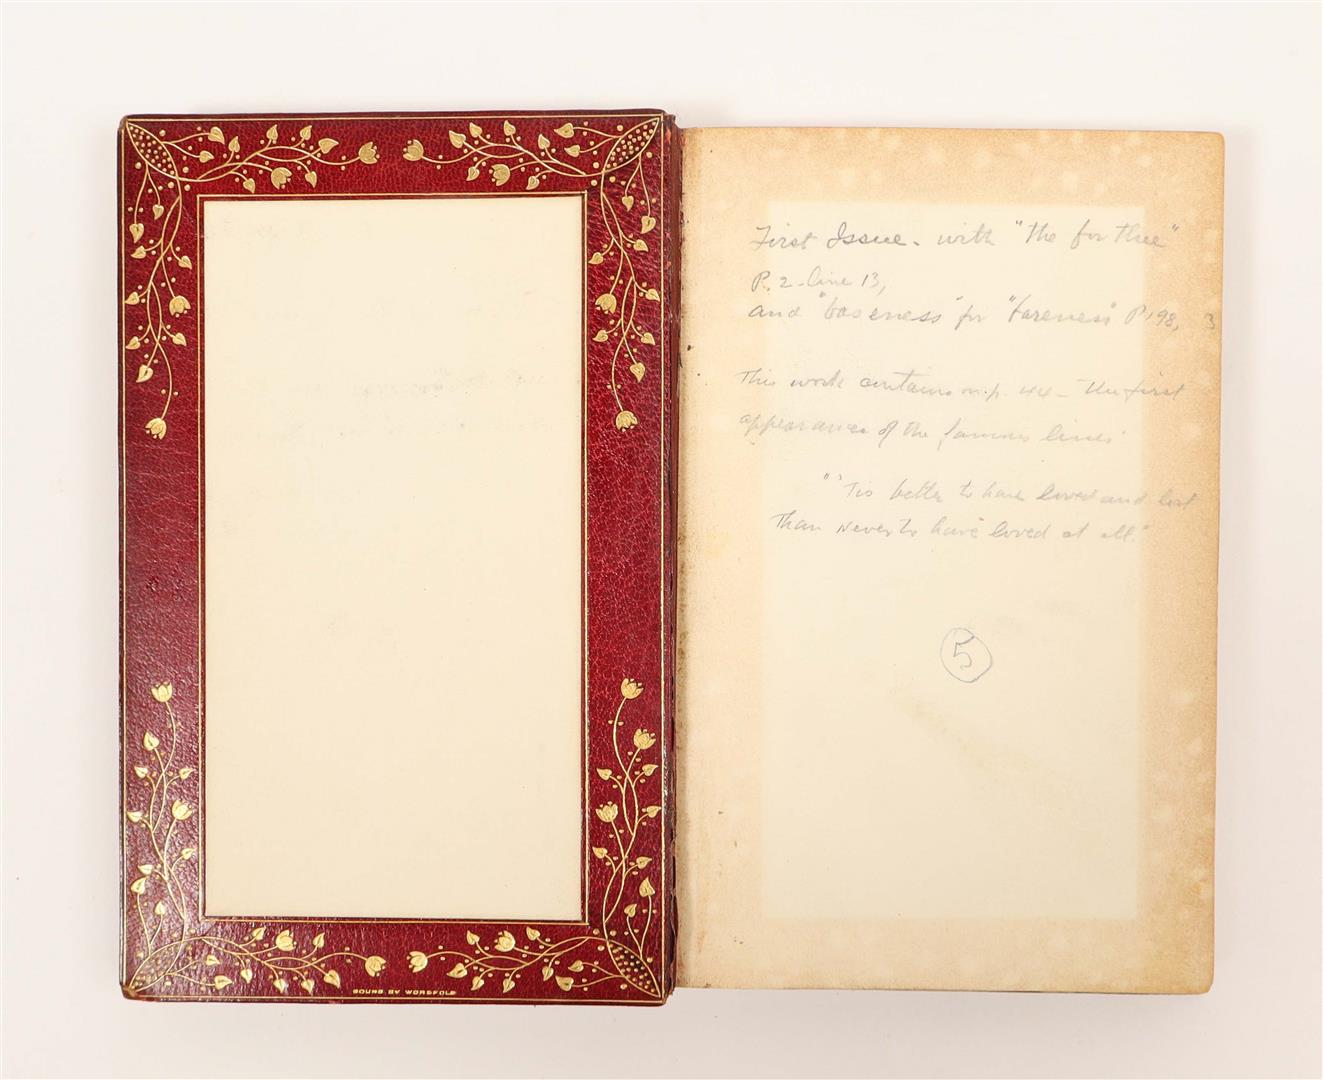 First Issue. with "the for thee"
P. 2 - line 13,
and "baseness" for "bareness" P. 198, 3
This work contains on p. 44 - the first
appearance of the famous lines
"'Tis better to have loved and lost
Than never to have loved at all."
5
BOUND BY WORSFOLD